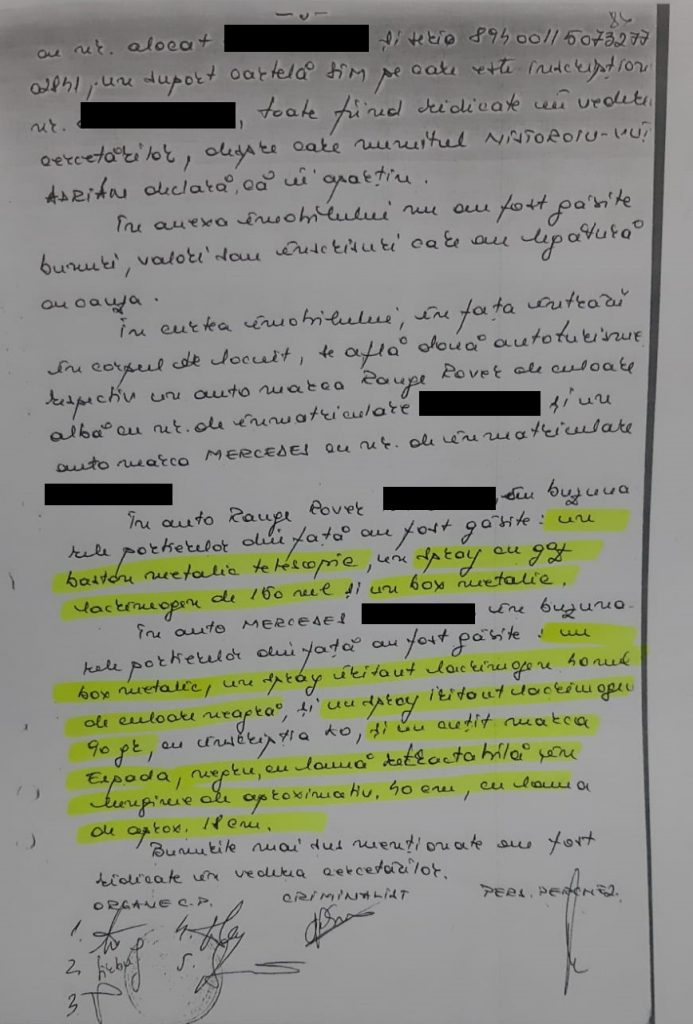 - v -
84
cu nr. alocat și serie 8940011 5073277
02841, un suport cartelă SIM pe care este inscripționat
nr. , toate fiind ridicate în vederea
cercetărilor, despre care numitul NISTOROIU-VUȚĂ
ADRIAN declară că îi aparțin.
În anexa imobilului nu au fost găsite
bunuri, valori sau înscrisuri care au legătură
cu cauza.
În curtea imobilului, în fața intrării
în corpul de locuit, se află două autoturisme
respectiv un auto marca Range Rover de culoare
albă cu nr. de înmatriculare și un
auto marca MERCEDES cu nr. de înmatriculare
În auto Range Rover , în buzuna
rele portierelor din față au fost găsite: un
baston metalic telescopic, un spray cu gaz
lacrimogen de 160 ml și un box metalic.
În auto MERCEDES în buzuna-
rele portierelor din față au fost găsite: un
box metalic, un spray iritant lacrimogen 40 ml
de culoare neagră, și un spray iritant lacrimogen
90 gr, cu inscripția KO, și un cuțit marca
Espada, negru, cu lamă retractabilă în
lungime de aproximativ. 40 cm, cu lama
de aprox. 18 cm.
Bunurile mai sus menționate au fost
ridicate în vederea cercetărilor.
ORGANE C.P. CRIMINALIST PERS. PERCHEZ.
1. 4.
2. 5.
3